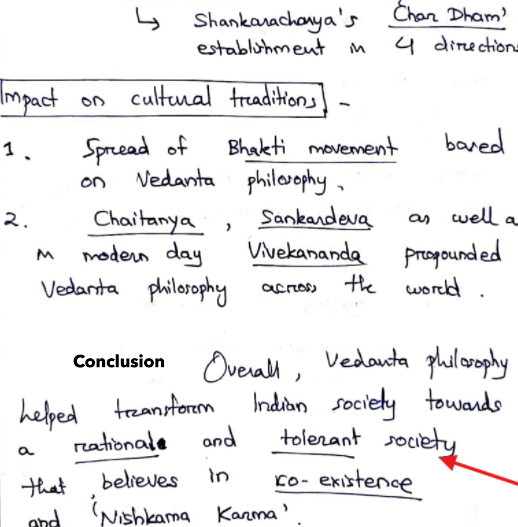 ↳ Shankaracharya's 'Char Dham'
establishment in 4 directions
Impact on cultural traditions -
1. Spread of Bhakti movement based
on Vedanta philosophy.
2. Chaitanya, Sankardeva as well a
in modern day Vivekananda propounded
Vedanta philosophy across the world.
Conclusion Overall, Vedanta philosophy
helped transform Indian society towards
a rational and tolerant society
that believes in co-existence
and 'Nishkama Karma'.